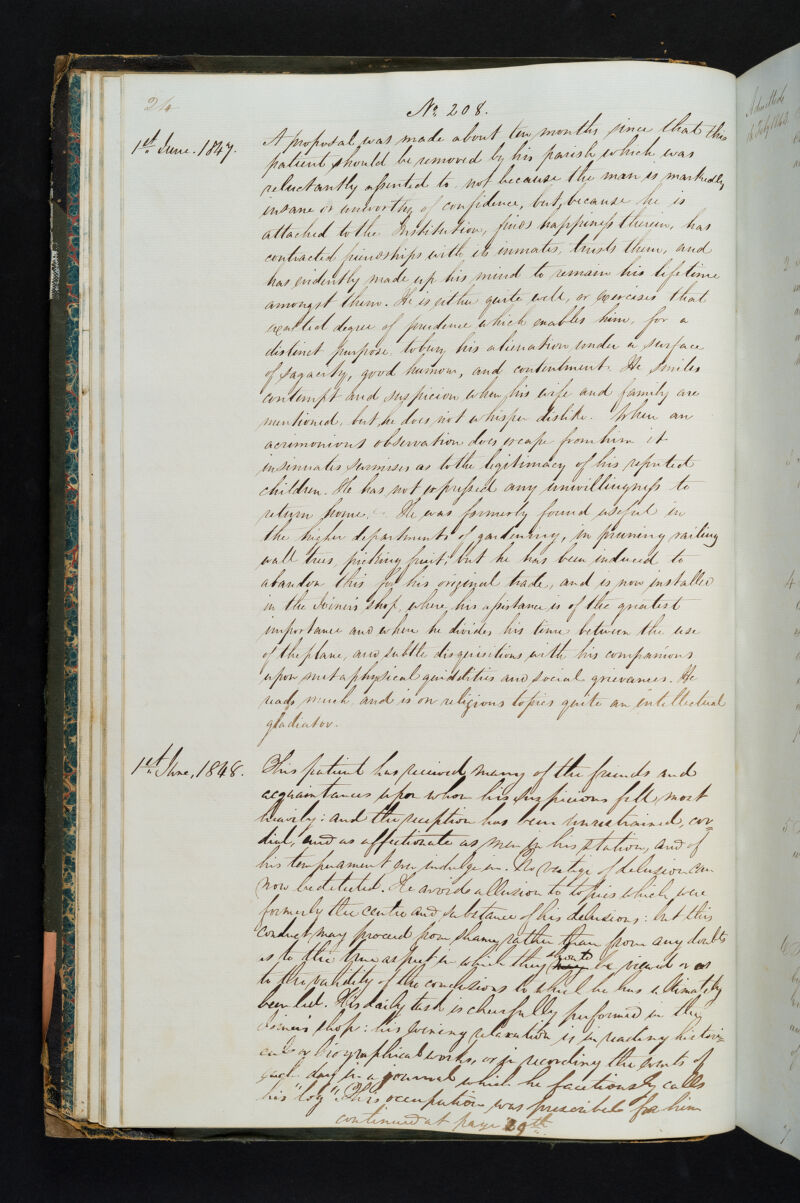 24
No. 208.
1st June. 1847.
A proposal was made about ten months since that this
patient should be removed by his parish which was
reluctantly assented to not because the man is markedly
insane or unworthy of confidence, but because he is
attached to the Institution, finds happiness therein, has
contracted friendships with its inmates, trusts them, and
has evidently made up his mind to remain his lifetime
amongst them. He is either quite well, or exercises that
exalted degree of prudence which enables him, for a
distinct purpose, to bury his alienation under a surface
of sagacity, good humour, and contentment. He smiles
contempt and suspicion when his wife and family are
mentioned, but he does not whisper dislike. When an
acrimonious observation does escape from him it
insinuates surmises as to the legitimacy of his reputed
children. He has not expressed any unwillingness to
return home. He was formerly found useful in
the higher departments of gardening, in pruning, nailing
wall trees, picking fruit; but he has been induced to
abandon this for his original trade, and is now installed
in the Joiner's shop, where his assistance is of the greatest
importance and where he divides his time between the use
of the plane, and subtle disquisitions with his companions
upon metaphysical quiddities and social grievances. He
reads much, and is on religious topics quite an intellectual
gladiator.
1st June, 1848.
This patient has received many of the friends and
acquaintances upon whom his suspicions fell most
heavily: and the reception has been unrestrained, cor-
dial, and as affectionate as men in his station, and of
his temperament can indulge in. No vestige of delusion can
now be detected. He avoids allusion to topics which were
formerly the centre and substance of his delusions: but this
conduct may proceed from shame rather than from any doubts
as to the true aspect in which they should be viewed or as
to the validity of the conclusions to which he has ultimately
been led. His daily task is cheerfully performed in the
Joiner's shop: his evening relaxation is in reading histori-
cal or biographical works, or in recording the events of
each day in a journal which he facetiously calls
his "log". This occupation was prescribed for him
continued at page 29th.